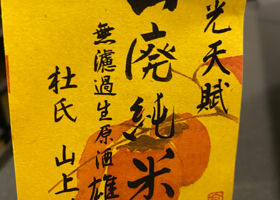 光天賦
廃純米
無濾過生原酒雄
杜氏 山上